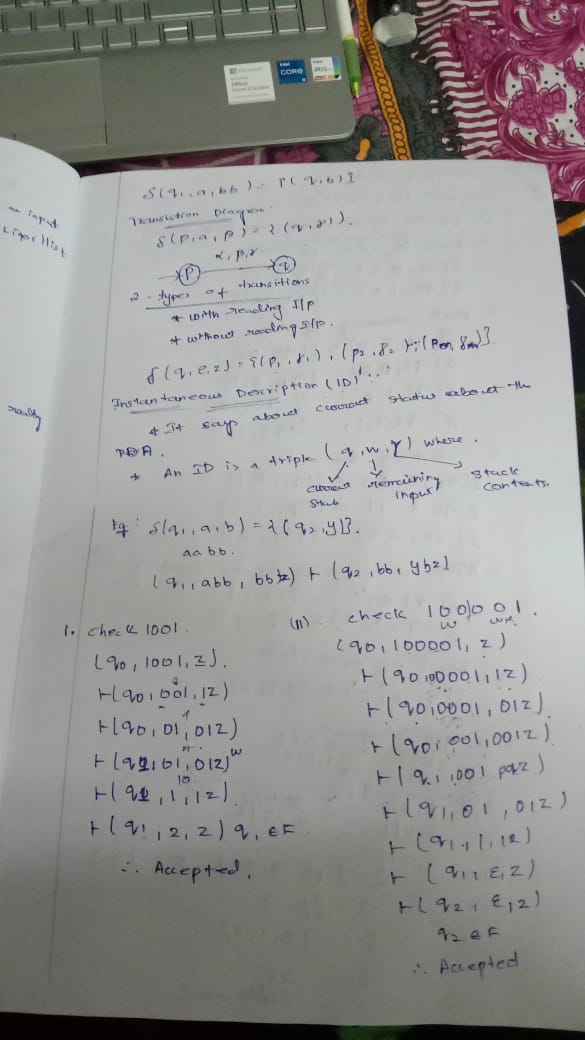 Microsoft
Office
Home & Student
intel
CORE
i5
intel
iRIS
an input
really
δ(q1, a, bb) = {(q, b)}
Transistion Diagram.
δ(p, a, β) = {(q, γ)}.
α, β, γ
P
q
2 - types of transitions
* with reading I/p
* without reading I/p.
δ(q, ε, z) = {(p1, γ1), (p2, γ2)
Instantaneous Description (ID)
* It says about current status about the
PDA.
* An ID is a triple (q, w, γ) where.
current
State
remaining
input
Stack
contents.
Eg: δ(q1, a, b) = {(q2, y)}.
aabb.
(q1, abb, bbz) ⊢ (q2, bb, ybz)
1. check 1001.
(q0, 1001, z).
⊢(q0, 001, 1z)
⊢(q0, 01, 01z)
⊢(q1, 01, 01z)
w
⊢(q1, 1, 1z).
⊢(q1, 2, z) q1 ∈ F
∴ Accepted.
(II). check 100001.
w
(q0, 100001, z)
⊢(q0, 00001, 1z)
⊢(q0, 0001, 01z)
⊢(q0, 001, 001z)
⊢(q1, 001
⊢(q1, 01, 01z)
⊢(q1, 1, 1z)
⊢(q1, ε, z)
⊢(q2, ε, z)
q2 ∈ F
∴ Accepted